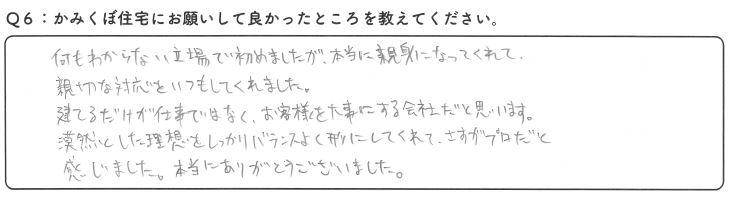 Q6：かみくぼ住宅にお願いして良かったところを教えてください。
何もわからない立場で初めましたが、本当に親身になってくれて、
親切な対応をいつもしてくれました。
建てるだけが仕事ではなく、お客様を大事にする会社だと思います。
漠然とした理想をしっかりバランスよく形にしてくれて、さすがプロだと
感じました。本当にありがとうございました。